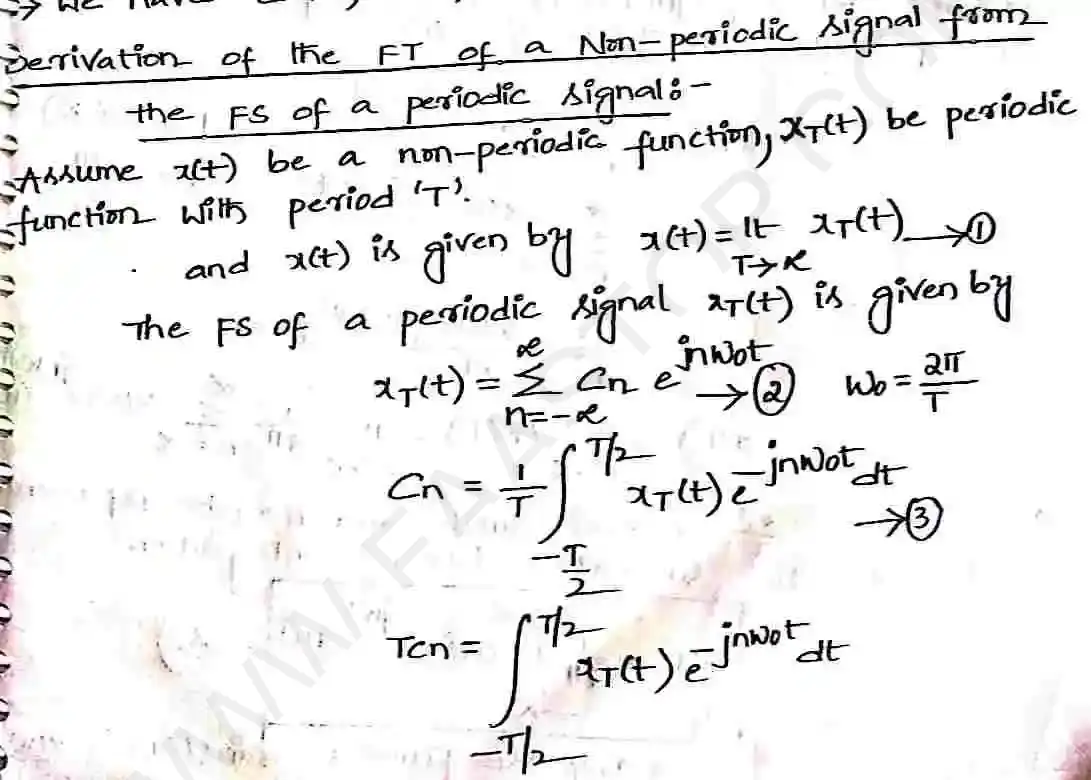 → We have
Derivation of the FT of a Non-periodic signal from
the FS of a periodic signal:-
Assume x(t) be a non-periodic function, x_T(t) be periodic
function with period 'T'.
and x(t) is given by x(t) = lt_{T→∞} x_T(t) → ①
The FS of a periodic signal x_T(t) is given by
x_T(t) = ∑_{n=-∞}^{∞} Cn e^{jnω₀t} → ② ω₀ = 2π/T
Cn = 1/T ∫_{-T/2}^{T/2} x_T(t) e^{-jnω₀t} dt → ③
TCn = ∫_{-T/2}^{T/2} x_T(t) e^{-jnω₀t} dt